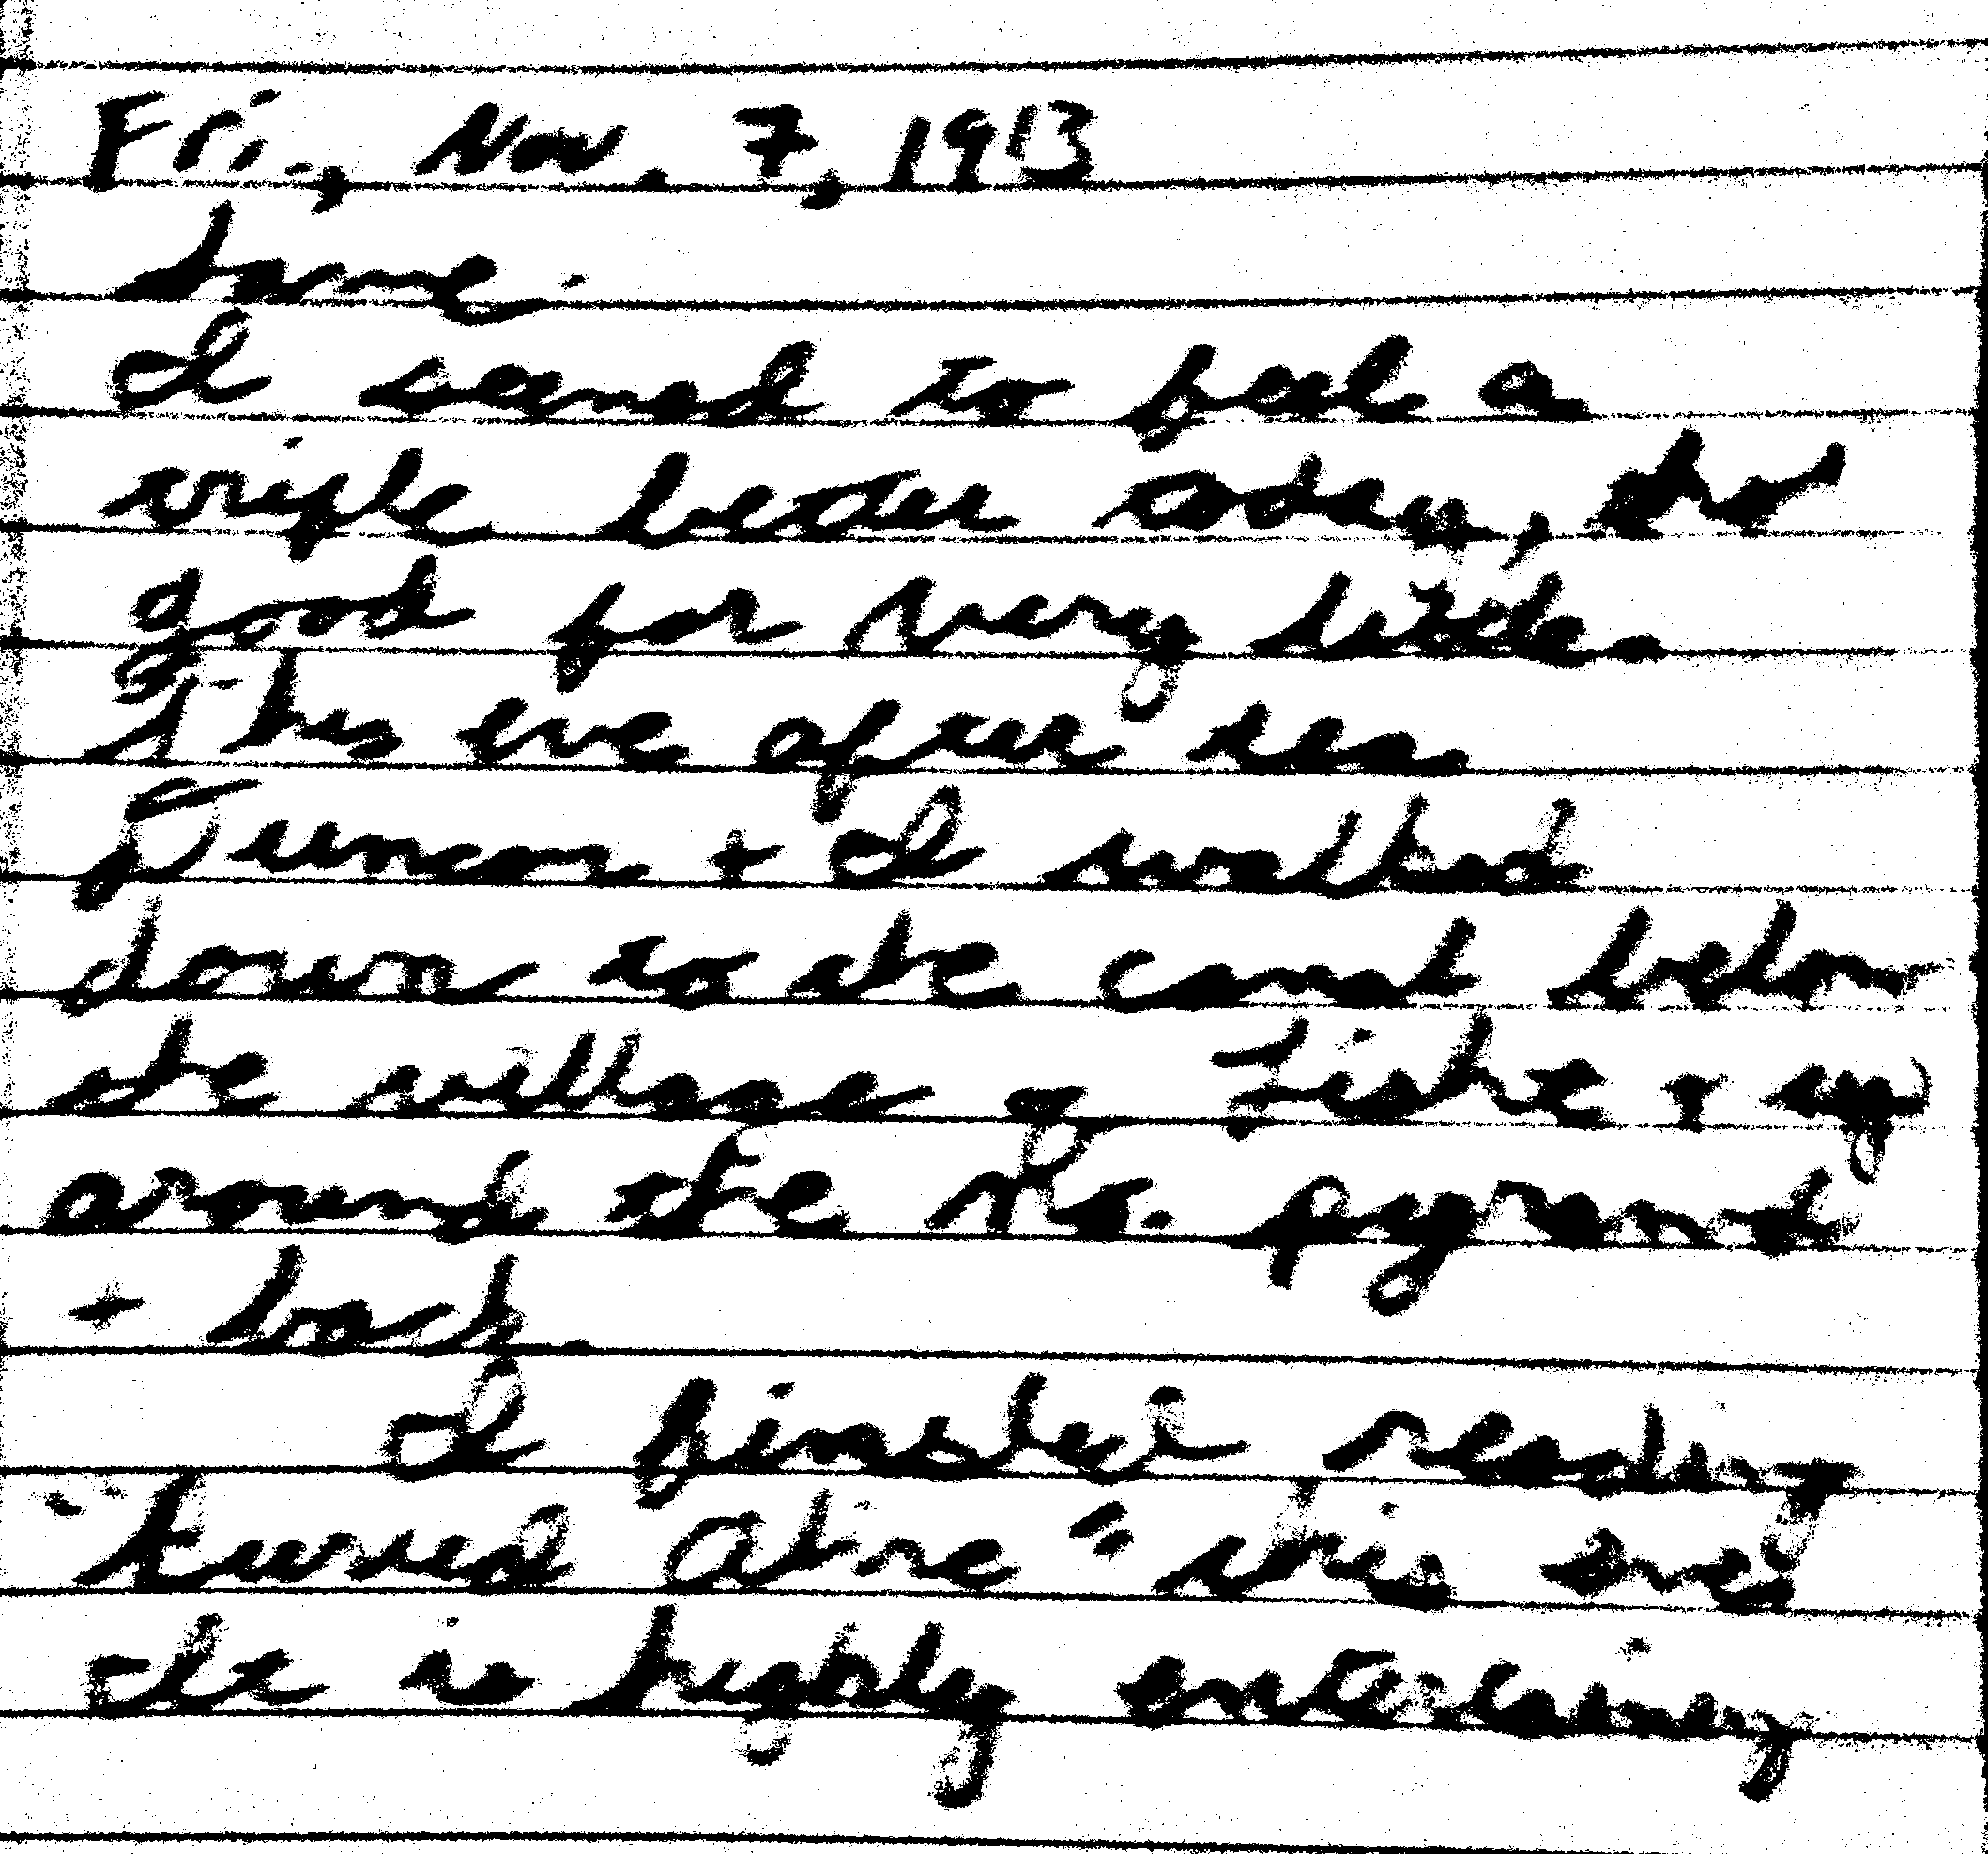 Fri., Nov. 7, 1913
Same.
I seemed to feel a
trifle better today, tho
good for very little.
This eve after tea
Juncon + I walked
down to the canal below
the village of Lisht + up
around the No. pyramid
+ back.
I finished reading
"Buried Alive" this eve.
It is highly entertaining